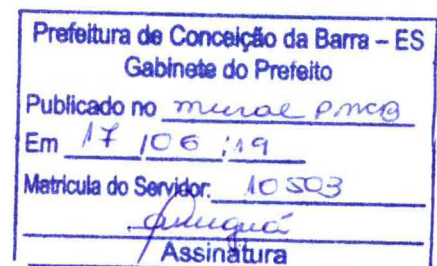 Prefeitura de Conceição da Barra – ES
Gabinete do Prefeito
Publicado no mural PMCB
Em 17/06/19
Matricula do Servidor: 10503
Assinatura